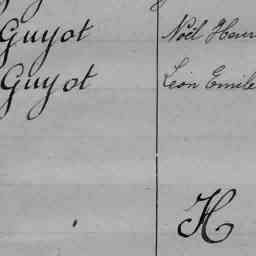 Guyot Noël Henri
Guyot Léon Emile
H